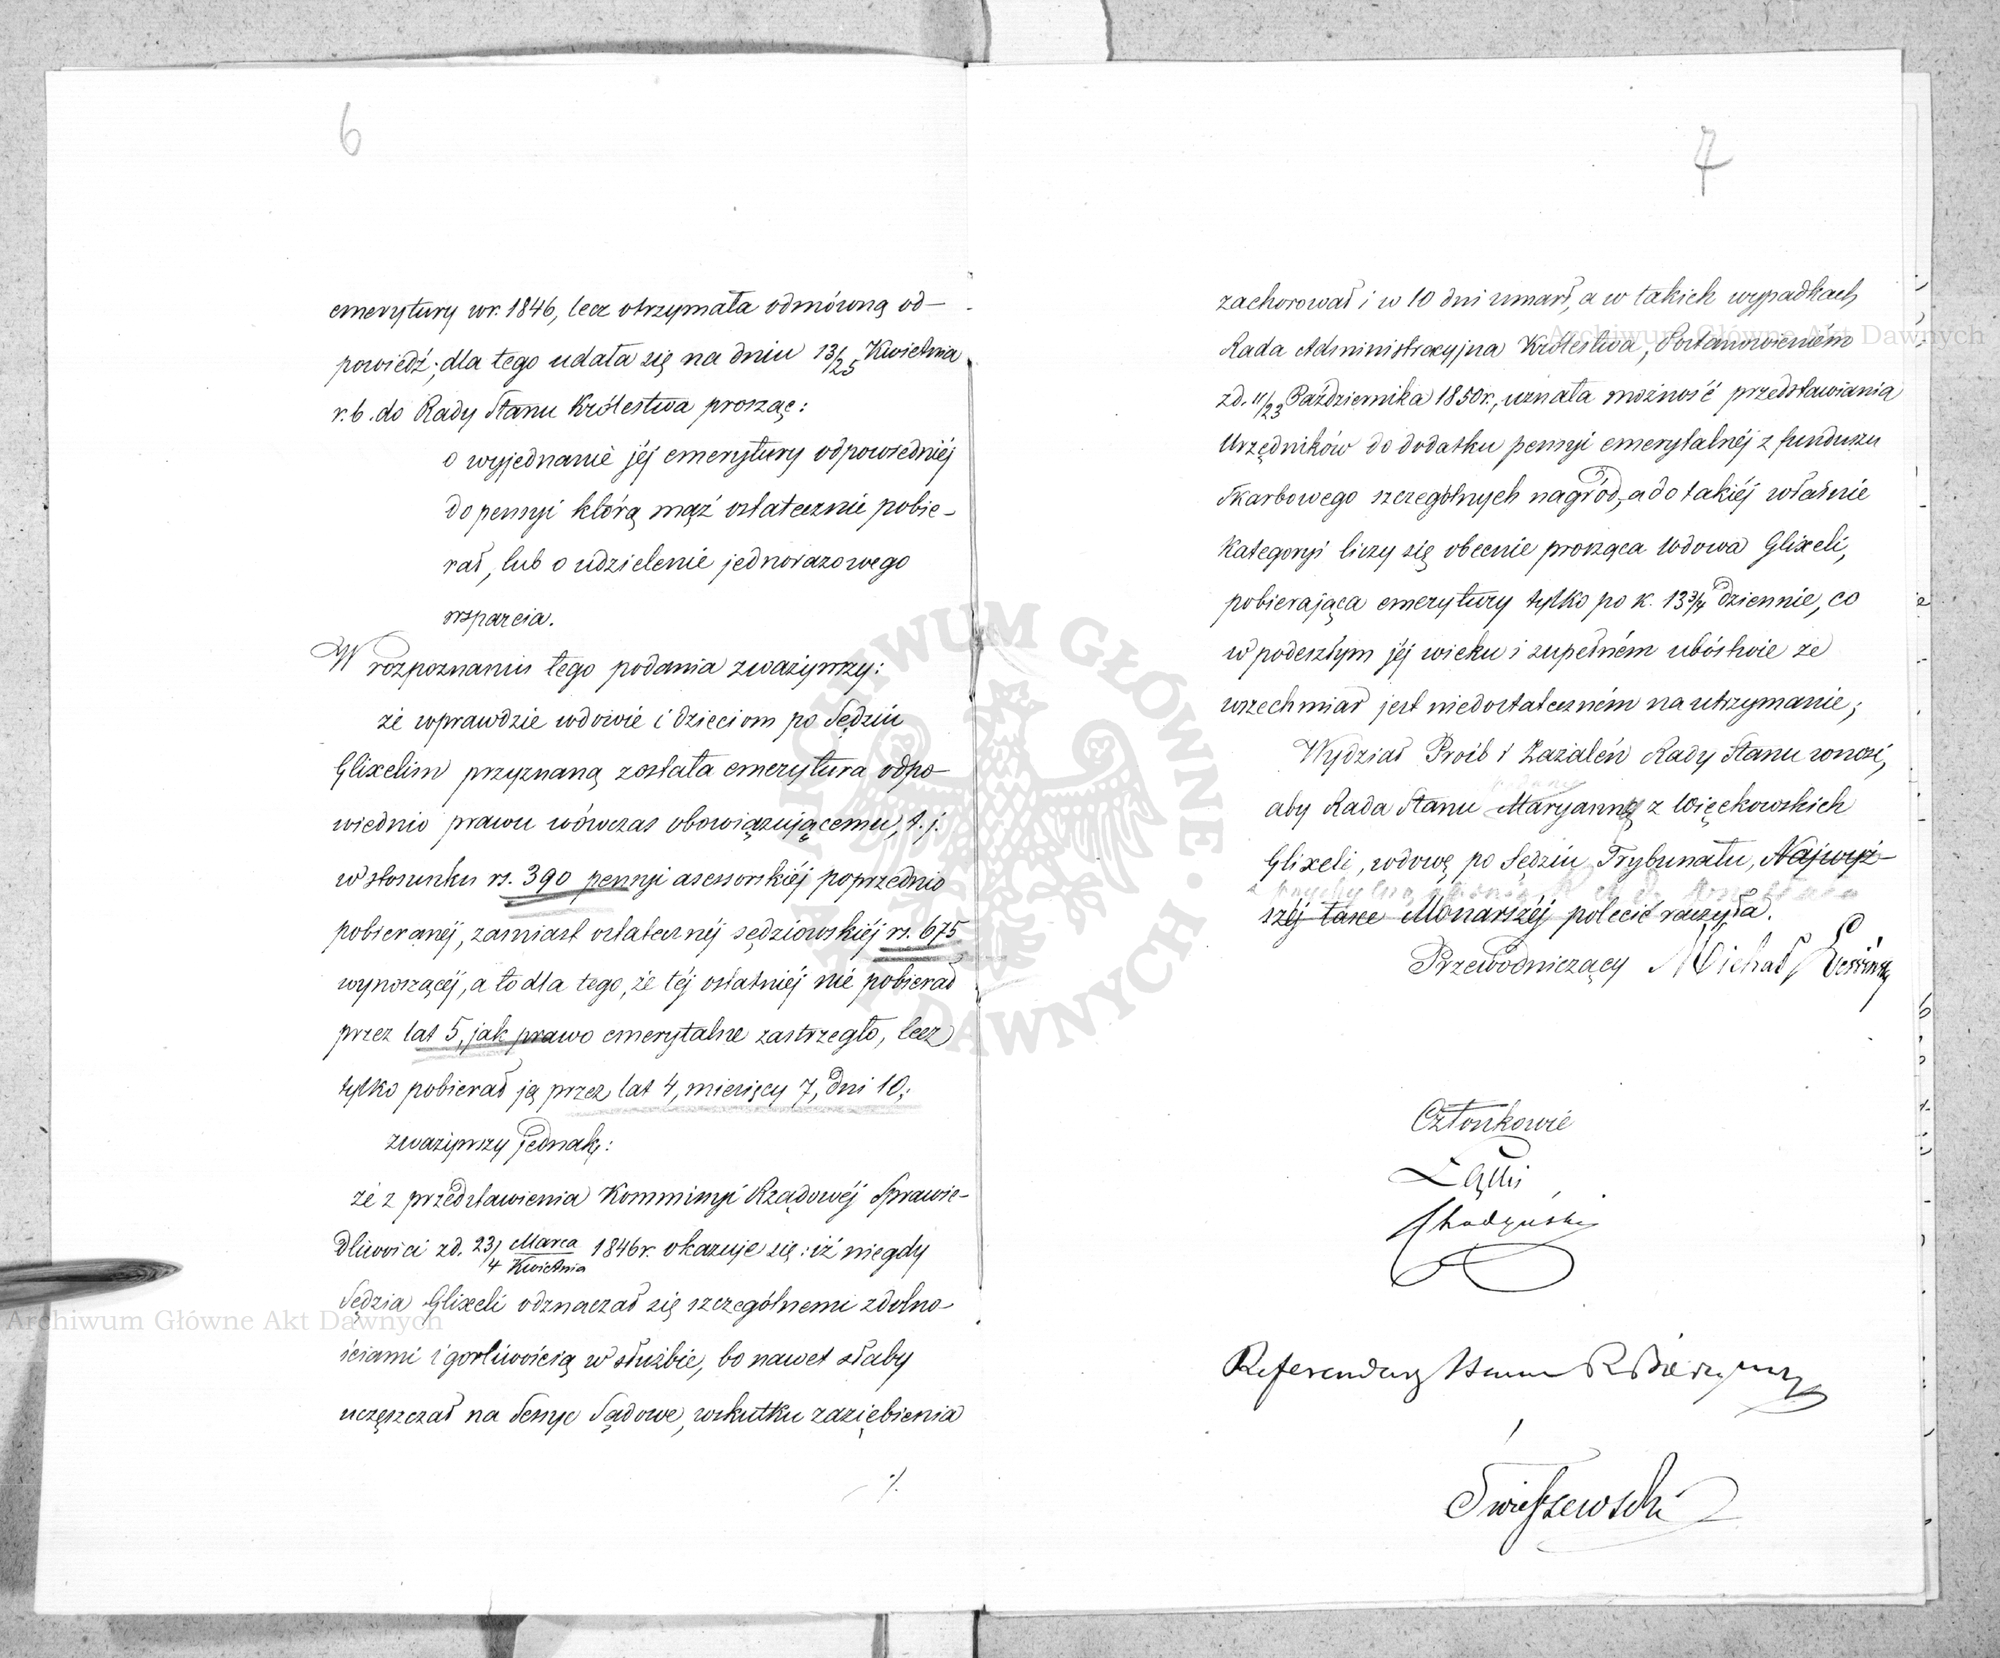 6
emerytury w r. 1846, lecz otrzymała odmówną od-
powiedź; dla tego udała się na dniu 13/25 Kwietnia
r. b. do Rady Stanu Królestwa prosząc:
o wyjednanie jéj emerytury odpowiedniéj
do pensyi którą mąż ostatecznie pobie-
rał, lub o udzielenie jednorazowego
wsparcia.
W rozpoznaniu tego podania zważywszy:
że wprawdzie wdowie i dzieciom po Sędziu
Glixelim przyznaną została emerytura odpo-
wiednio prawu wówczas obowiązującemu, t. j.
w stosunku rs. 390 pensyi asessorskiéj poprzednio
pobieranéj, zamiast ostatecznéj sędziowskiéj rs. 675
wynoszącéj, a to dla tego, że téj ostatniéj nie pobierał
przez lat 5, jak prawo emerytalne zastrzegło, lecz
tylko pobierał ją przez lat 4, miesięcy 7, dni 10;
zważywszy jednak:
że z przedstawienia Kommissyi Rządowéj Sprawie-
dliwości z d. 23 Marca/4 Kwietnia 1846 r. okazuje się: iż niegdy
Sędzia Glixeli odznaczał się szczególnemi zdolno-
ściami i gorliwością w służbie, bo nawet słaby
uczęszczał na Sessye Sądowe, wskutku zaziębienia
./.
7
zachorował i w 10 dni umarł, a w takich wypadkach
Rada Administracyjna Królestwa, Postanowieniem
z d. 11/23 Października 1850 r., uznała możność przedstawiania
Urzędników do dodatku pensyi emerytalnéj z funduszu
Skarbowego szczególnych nagród, a do takiéj właśnie
Kategoryi liczy się obecnie prosząca Wdowa Glixeli,
pobierająca emerytury tylko po k. 13 3/4 dziennie, co
w podeszłym jéj wieku i zupełném ubóstwie ze
wszech miar jest niedostateczném na utrzymanie;
Wydział Próśb i Zażaleń Rady Stanu wnosi,
podanie
aby Rada Stanu Maryanny z Więckowskich
Glixeli, wdowę po Sędziu Trybunału, Najwyż-
széj łasce Monarszéj polecić raczyła.
Przewodniczący Michał
Członkowie
Łęski
Chodzyński
Referendarz Stanu
Świeszewski
Archiwum Główne Akt Dawnych
Archiwum Główne Akt Dawnych
ARCHIWUM GŁÓWNE · AKT DAWNYCH ·